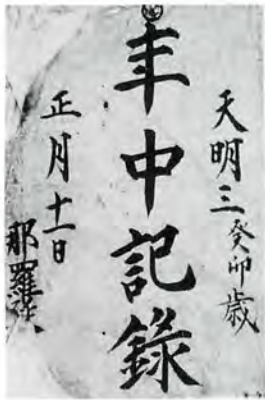 天明三癸卯歳
年中記録
正月十一日
那羅